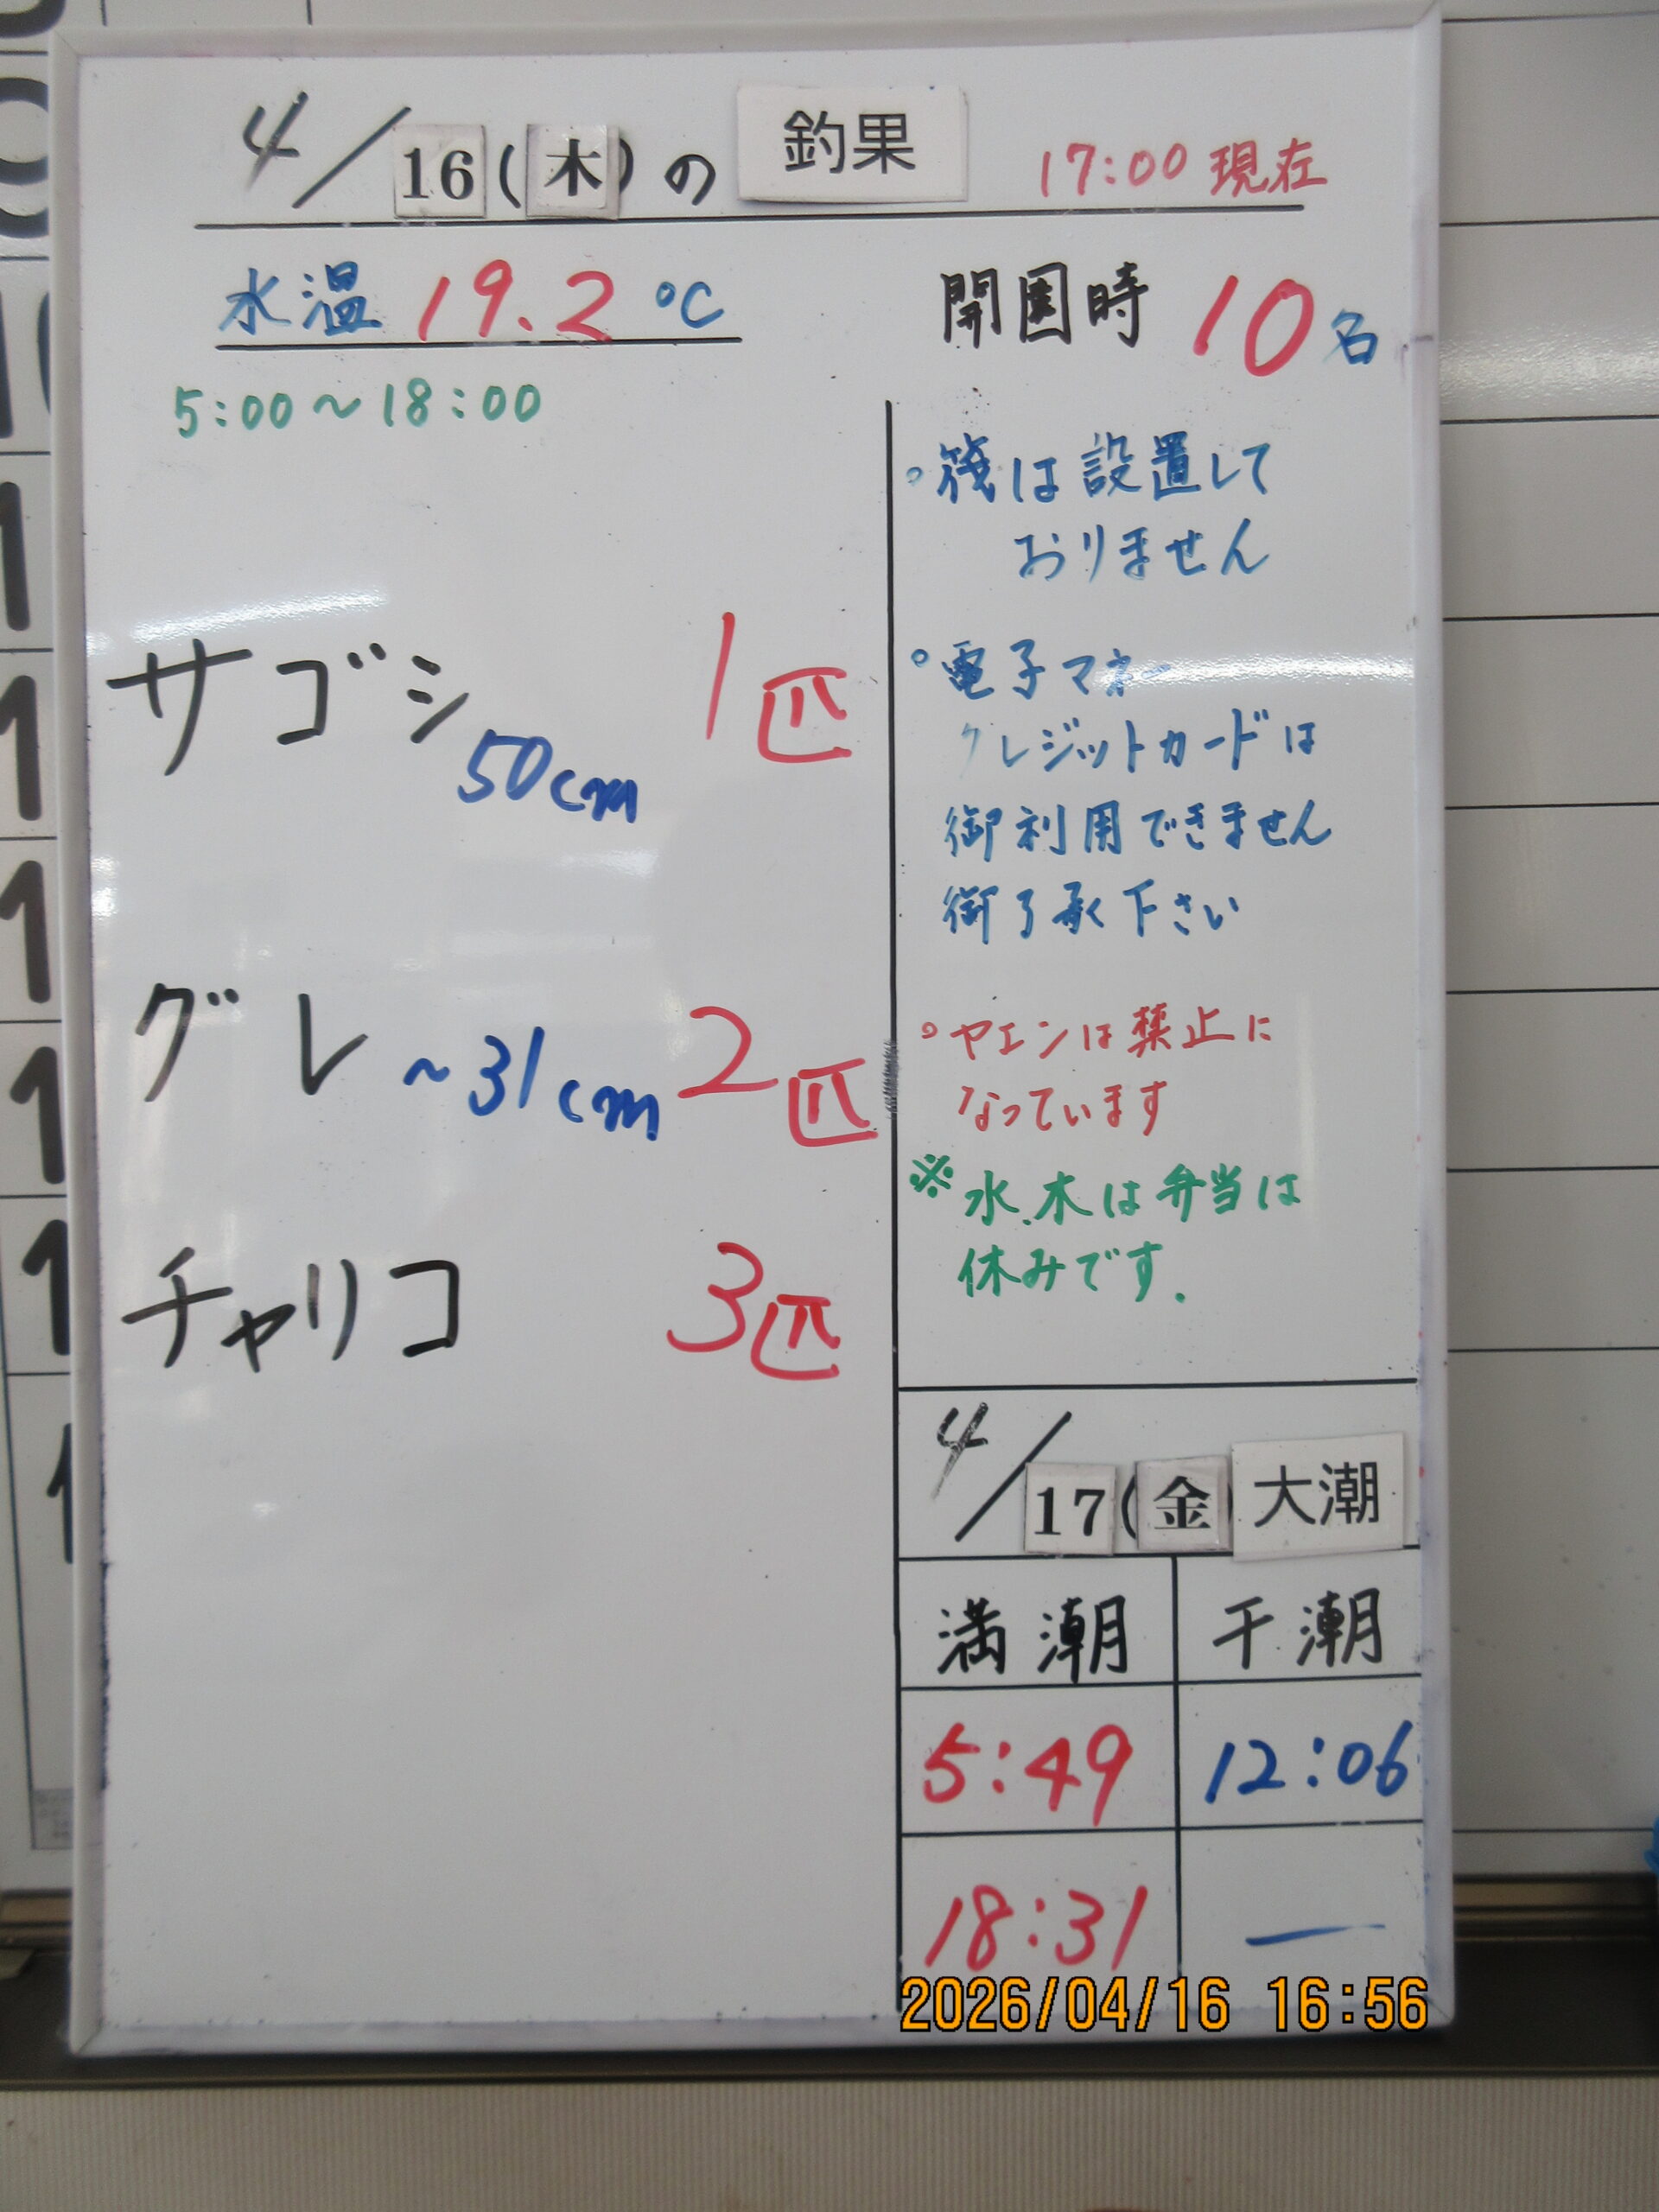 4/16(木)の 釣果 17:00 現在
水温 19.2 ℃
開園時 10名
5:00〜18:00
サゴシ 50cm 1匹
グレ 〜31cm 2匹
チャリコ 3匹
。筏は設置して
おりません
。電子マネー
クレジットカードは
御利用できません
御了承下さい
。ヤエンは禁止に
なっています
※水.木は弁当は
休みです.
4/17(金 大潮
満潮 干潮
5:49 12:06
18:31 —
2026/04/16 16:56